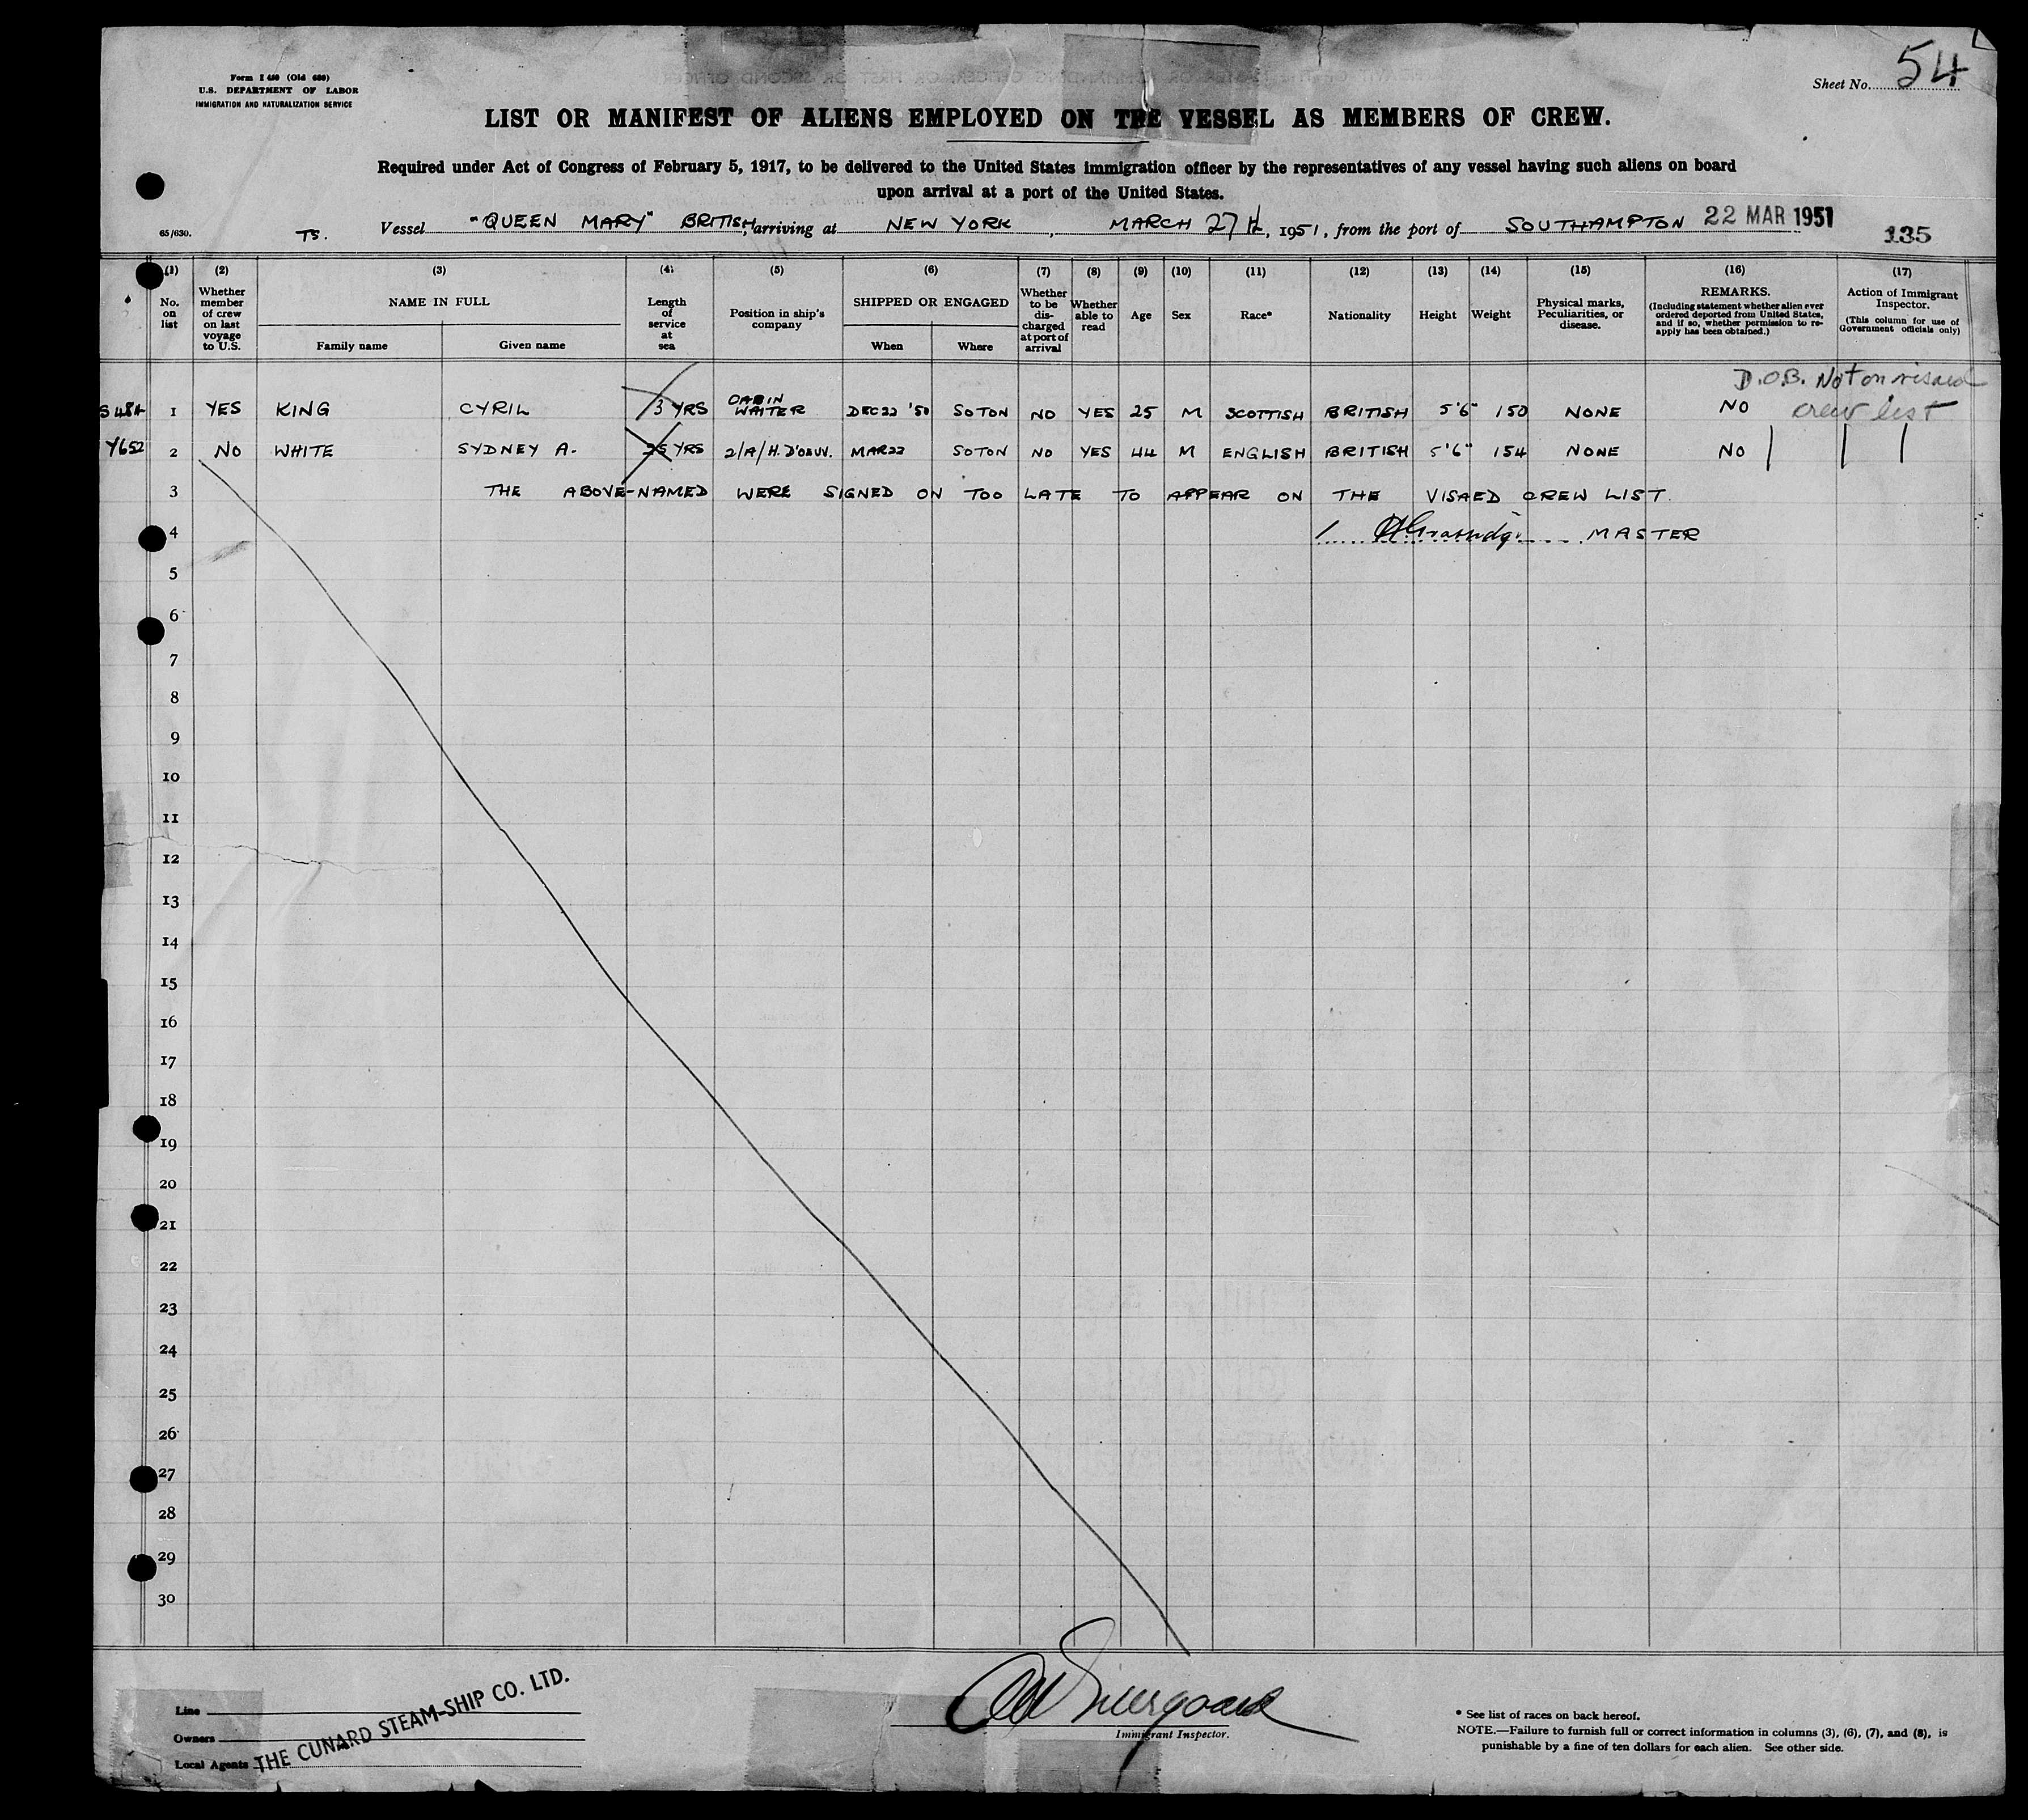 Form I 480 (Old 680)
U.S. DEPARTMENT OF LABOR
IMMIGRATION AND NATURALIZATION SERVICE
Sheet No. 54
LIST OR MANIFEST OF ALIENS EMPLOYED ON THE VESSEL AS MEMBERS OF CREW.
Required under Act of Congress of February 5, 1917, to be delivered to the United States immigration officer by the representatives of any vessel having such aliens on board
upon arrival at a port of the United States.
65/630. TS. Vessel "QUEEN MARY" BRITISH, arriving at NEW YORK, MARCH 27th, 1951, from the port of SOUTHAMPTON 22 MAR 1951
135
(1) (2) (3) (4) (5) (6) (7) (8) (9) (10) (11) (12) (13) (14) (15) (16) (17)
No. on list
Whether member of crew on last voyage to U.S.
NAME IN FULL
Family name
Given name
Length of service at sea
Position in ship's company
SHIPPED OR ENGAGED
When
Where
Whether to be discharged at port of arrival
Whether able to read
Age
Sex
Race*
Nationality
Height
Weight
Physical marks, Peculiarities, or disease.
REMARKS.
(Including statement whether alien ever ordered deported from United States, and if so, whether permission to re-apply has been obtained.)
Action of Immigrant Inspector.
(This column for use of Government officials only)
D.O.B. Not on visaed
crew list
1 YES KING CYRIL 3 YRS CABIN WAITER DEC 22 '50 SOTON NO YES 25 M SCOTTISH BRITISH 5'6" 150 NONE NO
Y652 2 NO WHITE SYDNEY A. 25 YRS 2/A/H. D'OEUV. MAR 22 SOTON NO YES 44 M ENGLISH BRITISH 5'6" 154 NONE NO
3 THE ABOVE-NAMED WERE SIGNED ON TOO LATE TO APPEAR ON THE VISAED CREW LIST.
4 MASTER
5
6
7
8
9
10
11
12
13
14
15
16
17
18
19
20
21
22
23
24
25
26
27
28
29
30
Line
Owners
Local Agents
THE CUNARD STEAM-SHIP CO. LTD.
Immigrant Inspector.
* See list of races on back hereof.
NOTE.—Failure to furnish full or correct information in columns (3), (6), (7), and (8), is
punishable by a fine of ten dollars for each alien. See other side.